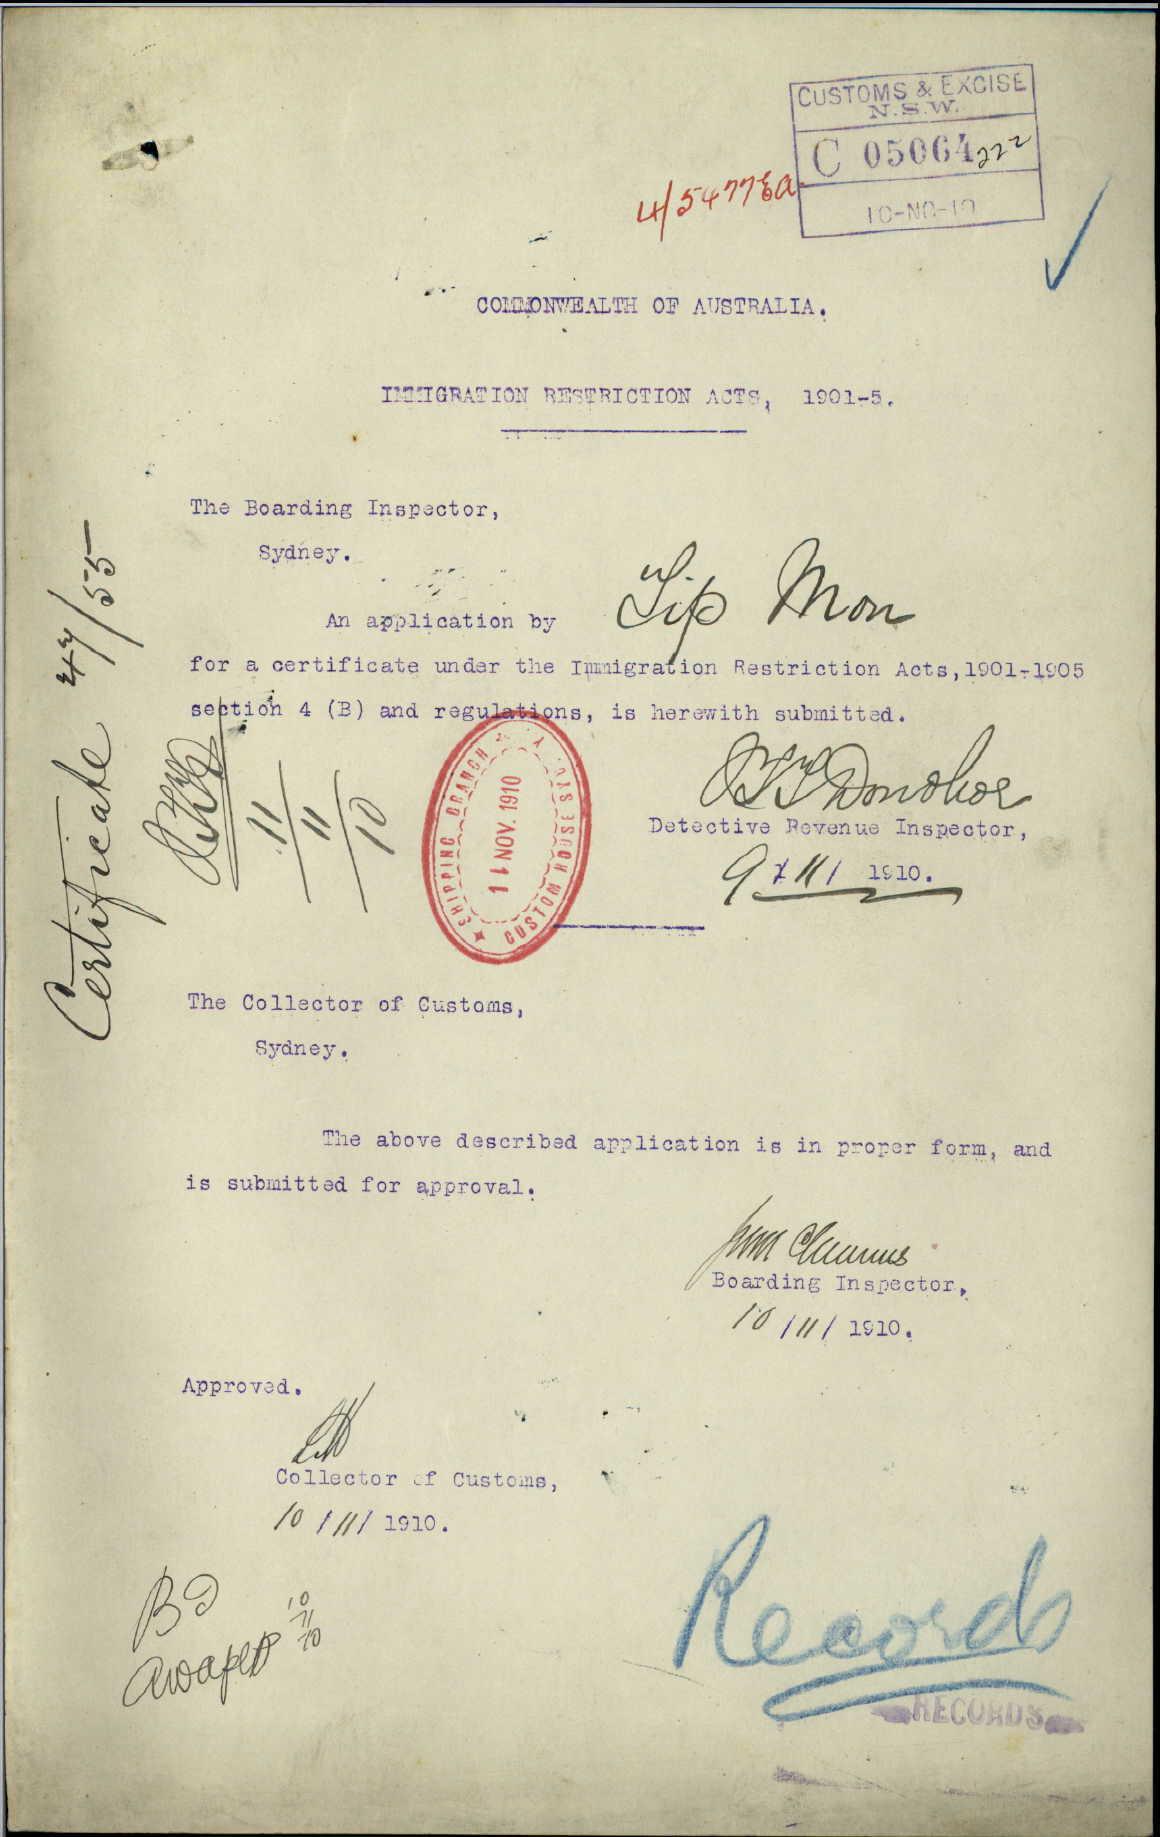 CUSTOMS & EXCISE
N.S.W.
C 05064 222
10-NO-10
COMMONWEALTH OF AUSTRALIA.
IMMIGRATION RESTRICTION ACTS, 1901-5.
The Boarding Inspector,
Sydney.
An application by Lip Mon
for a certificate under the Immigration Restriction Acts,1901-1905
section 4 (B) and regulations, is herewith submitted.
Donohoe
Detective Revenue Inspector,
9/11/ 1910.
Certificate 47/55
11/11/10
SHIPPING BRANCH
11 NOV. 1910
CUSTOM HOUSE SYDNEY
The Collector of Customs,
Sydney.
The above described application is in proper form, and
is submitted for approval.
Boarding Inspector,
10/11/ 1910.
Approved.
Collector of Customs,
10/11/ 1910.
10/11/10
Records
RECORDS